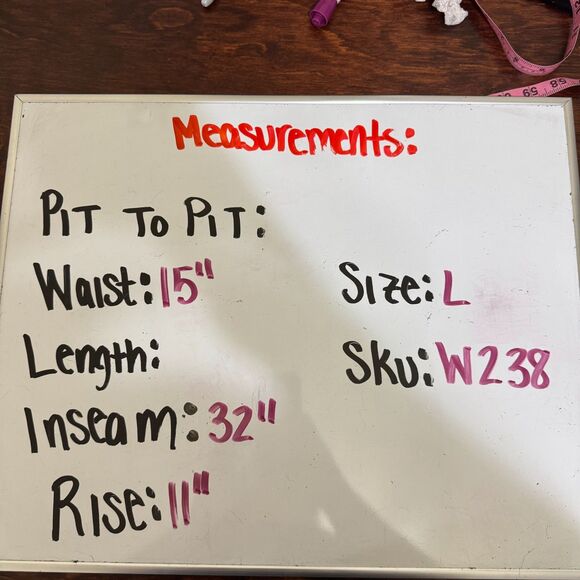 Measurements:
Pit To Pit:
Waist: 15"
Size: L
Length:
Sku: W238
Inseam: 32"
Rise: 11"
58
59